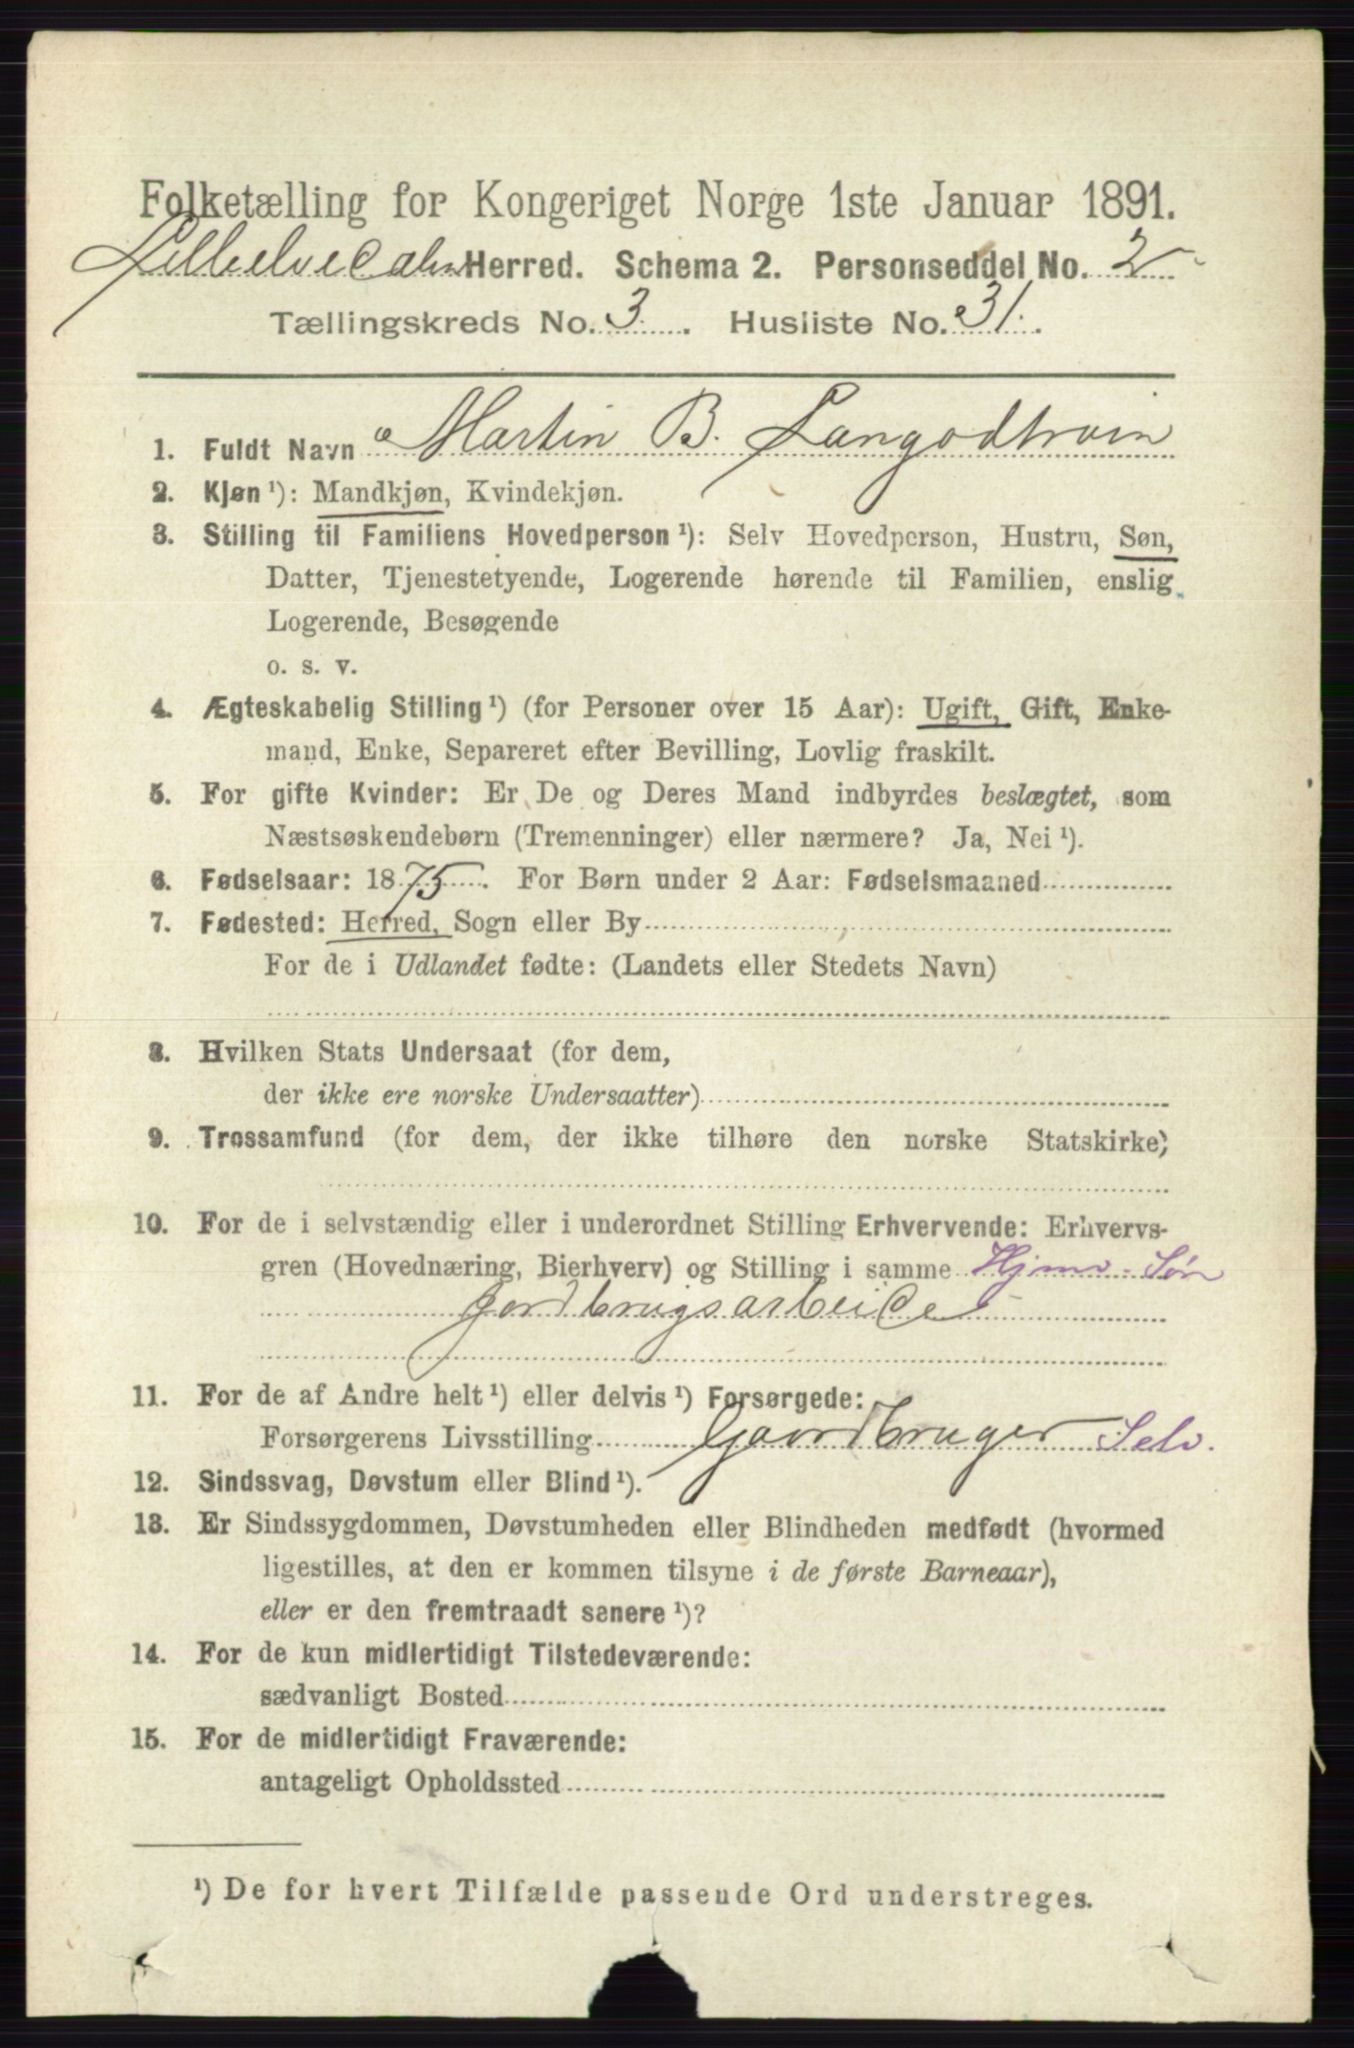 Folketælling for Kongeriget Norge 1ste Januar 1891.
Lilleelvedalen Herred. Schema 2. Personseddel No. 2
Tællingskreds No. 3. Husliste No. 31.
1. Fuldt Navn Martin B. Langodtrøin
2. Kjøn ¹): Mandkjøn, Kvindekjøn.
3. Stilling til Familiens Hovedperson ¹): Selv Hovedperson, Hustru, Søn,
Datter, Tjenestetyende, Logerende hørende til Familien, enslig
Logerende, Besøgende
o. s. v.
4. Ægteskabelig Stilling ¹) (for Personer over 15 Aar): Ugift, Gift, Enke-
mand, Enke, Separeret efter Bevilling, Lovlig fraskilt.
5. For gifte Kvinder: Er De og Deres Mand indbyrdes beslægtet, som
Næstsøskendebørn (Tremenninger) eller nærmere? Ja, Nei ¹).
6. Fødselsaar: 1875. For Børn under 2 Aar: Fødselsmaaned
7. Fødested: Herred, Sogn eller By
For de i Udlandet fødte: (Landets eller Stedets Navn)
8. Hvilken Stats Undersaat (for dem,
der ikke ere norske Undersaatter)
9. Trossamfund (for dem, der ikke tilhøre den norske Statskirke)
10. For de i selvstændig eller i underordnet Stilling Erhvervende: Erhvervs-
gren (Hovednæring, Bierhverv) og Stilling i samme Hjmv. Søn
Jordbrugsarbeide
11. For de af Andre helt ¹) eller delvis ¹) Forsørgede:
Forsørgerens Livsstilling Gaardbruger Selv.
12. Sindssvag, Døvstum eller Blind ¹).
13. Er Sindssygdommen, Døvstumheden eller Blindheden medfødt (hvormed
ligestilles, at den er kommen tilsyne i de første Barneaar),
eller er den fremtraadt senere ¹)?
14. For de kun midlertidigt Tilstedeværende:
sædvanligt Bosted
15. For de midlertidigt Fraværende:
antageligt Opholdssted
¹) De for hvert Tilfælde passende Ord understreges.